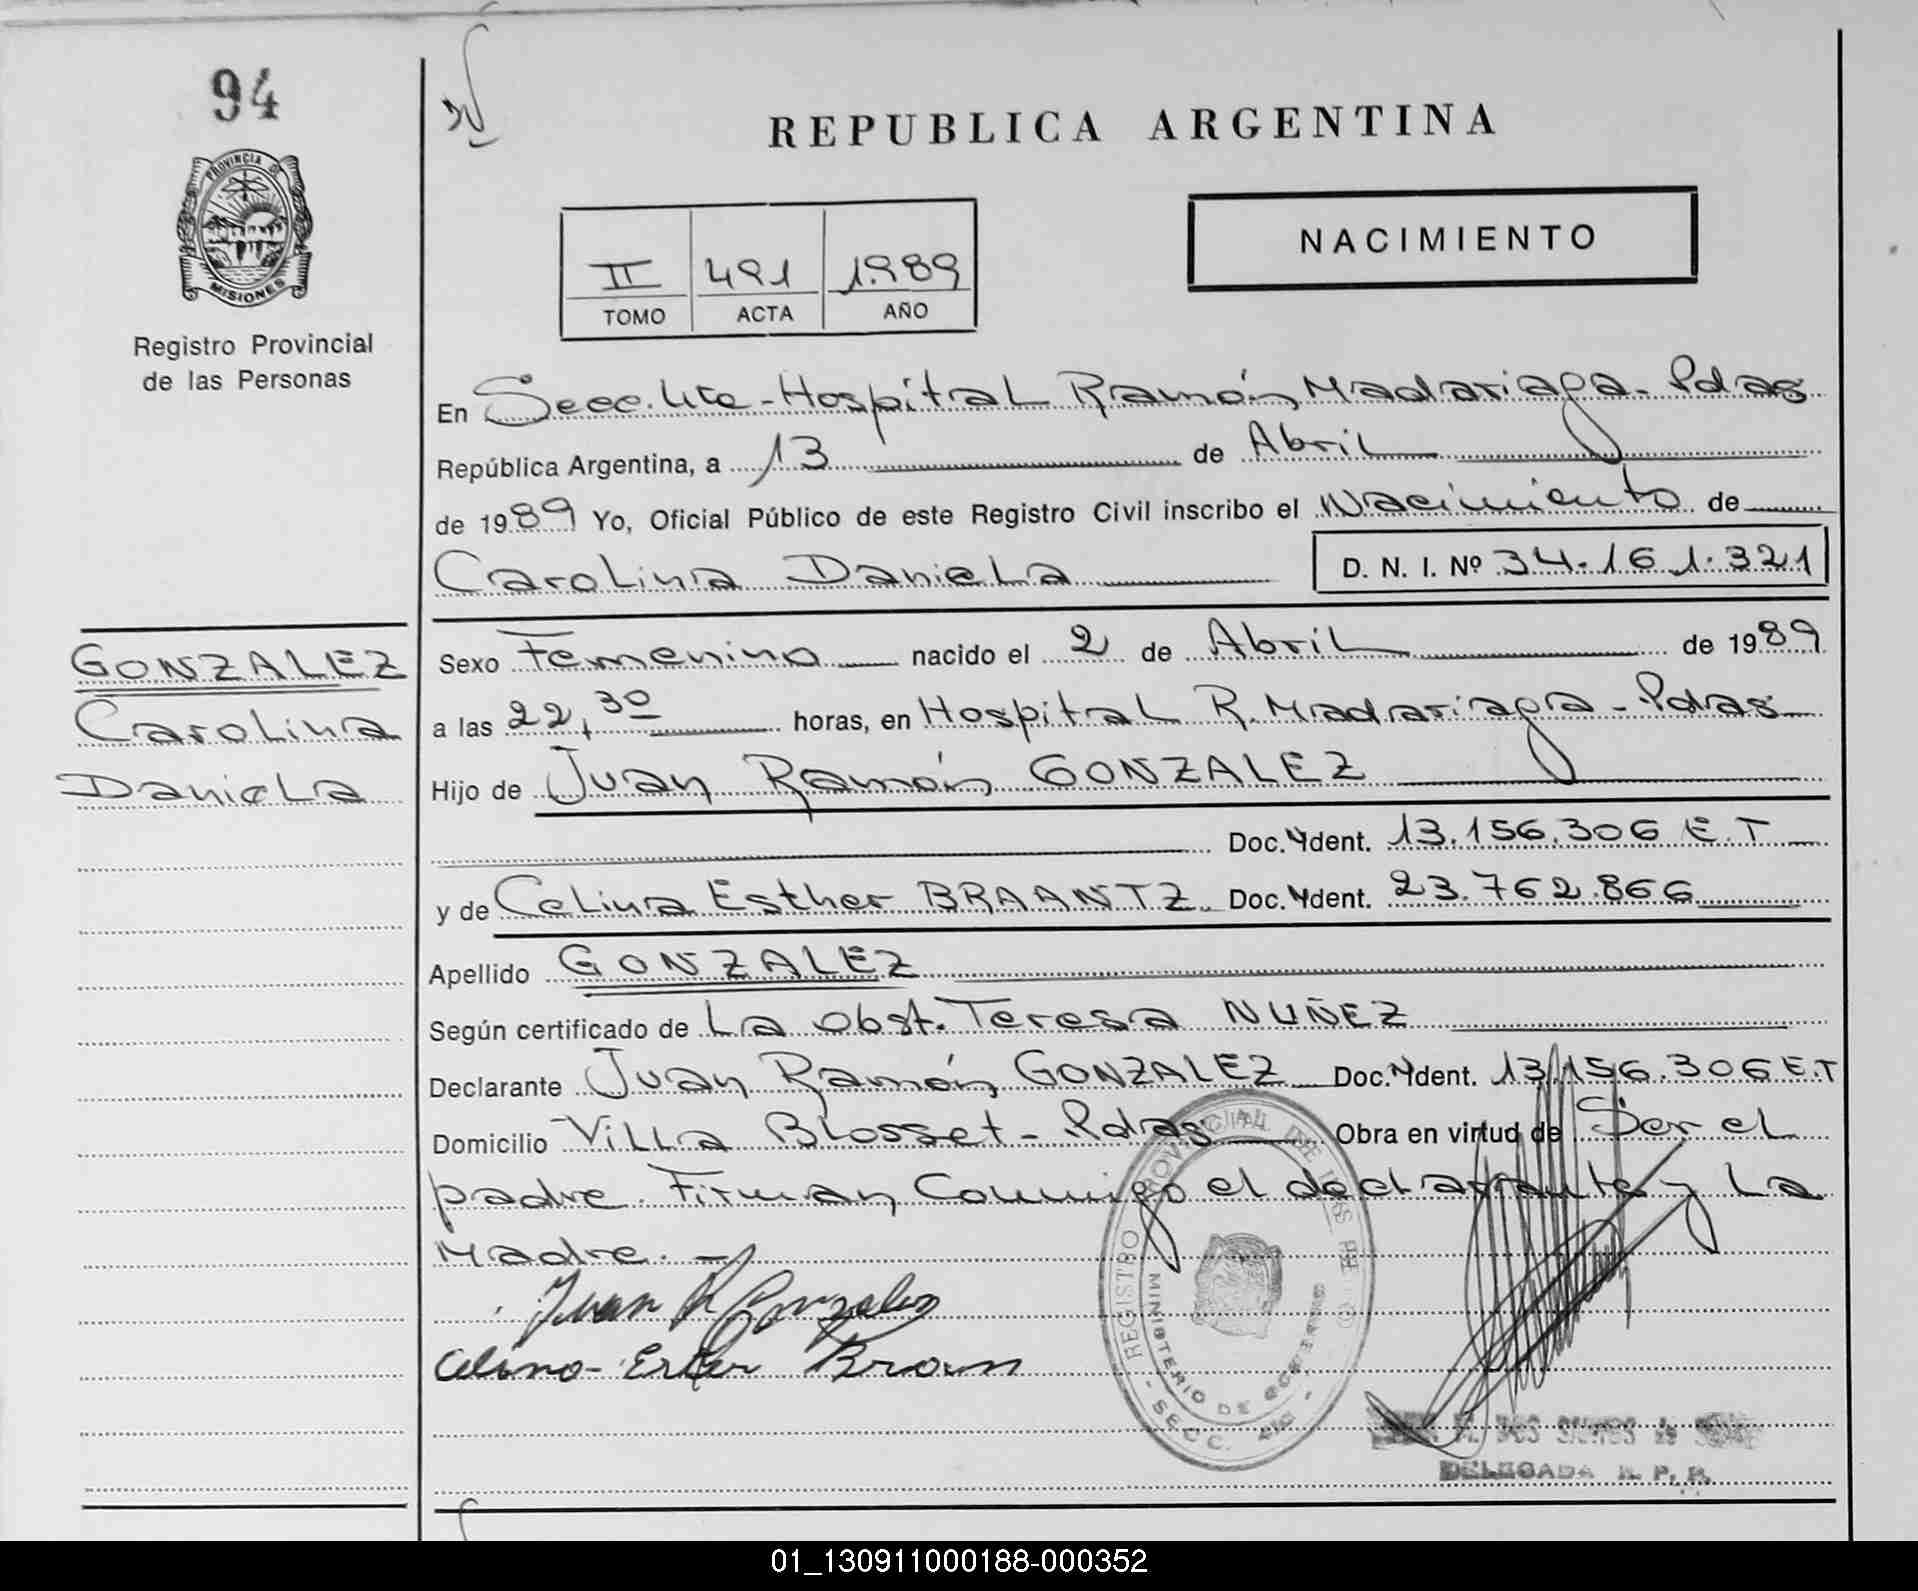 94
REPUBLICA ARGENTINA
PROVINCIA DE
MISIONES
Registro Provincial
de las Personas
NACIMIENTO
II 491 1.989
TOMO ACTA AÑO
En Secc. 4ta - Hospital Ramón Madariaga - Pdas
República Argentina, a 13 de Abril
de 1989 Yo, Oficial Público de este Registro Civil inscribo el Nacimiento de
Carolina Daniela D. N. I. Nº 34.161.321
GONZALEZ
Carolina
Daniela
Sexo Femenino nacido el 2 de Abril de 1989
a las 22,30 horas, en Hospital R. Madariaga - Pdas
Hijo de Juan Ramón GONZALEZ
Doc. Ident. 13.156.306 E.T
y de Celina Esther BRAANTZ Doc. Ident. 23.762.866
Apellido GONZALEZ
Según certificado de La Obst. Teresa NUÑEZ
Declarante Juan Ramón GONZALEZ Doc. Ident. 13.156.306 E.T
Domicilio Villa Blosset - Pdas Obra en virtud de Ser el
padre. Firman Conmigo el declarante y La
Madre. -
Juan R Gonzalez
REGISTRO PROVINCIAL DE LAS
MINISTERIO DE GOBIERNO
SECC.
DELEGADA R. P. P.
01_130911000188-000352